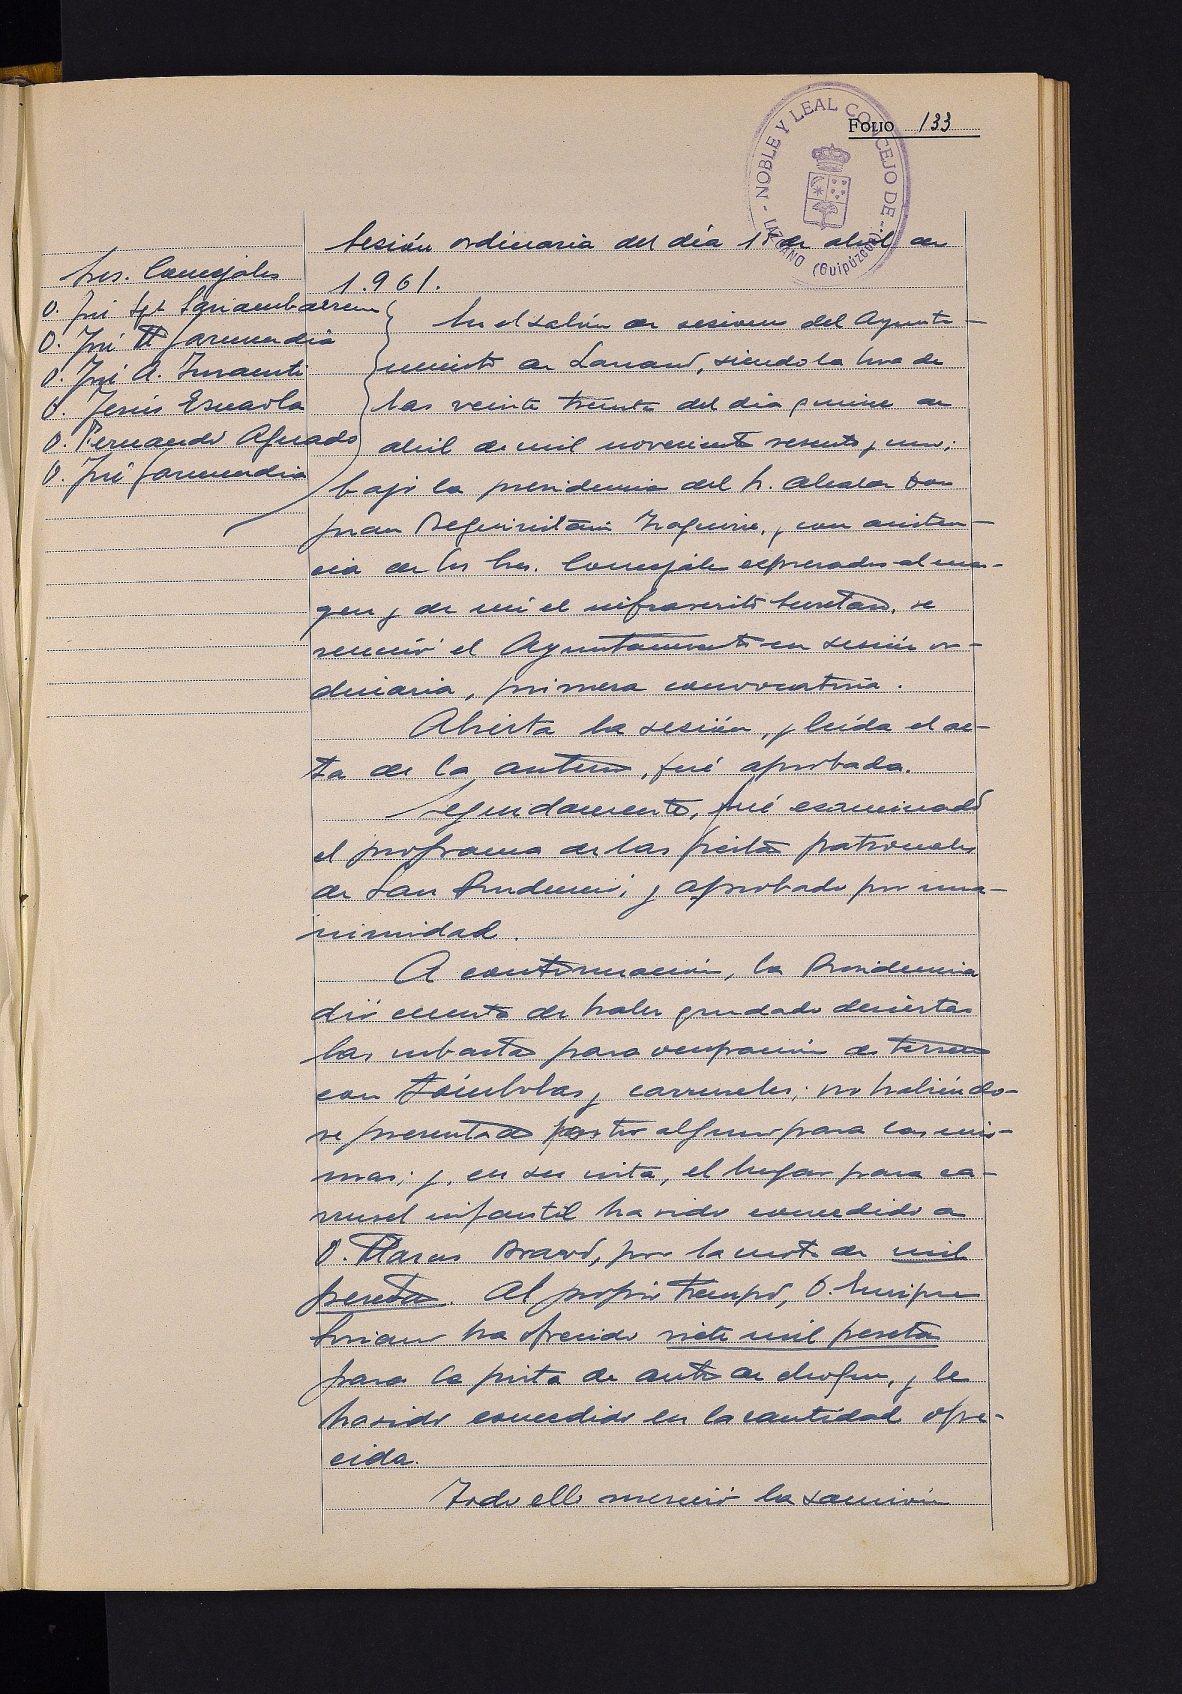 FOLIO 133
- NOBLE Y LEAL CONCEJO DE - LAZCANO (Guipúzcoa)
Sesión ordinaria del día 15 de abril de
1.961.
Sres. Concejales
D. José Igº
D. José Mª Garmendia
D. José A. Insausti
D. Jesús Esnaola
D. Fernando Aguado
D. José Garmendia
En el salón de sesiones del Ayunta-
miento de Lazcano, siendo la hora de
las veinte treinta del día quince de
abril de mil novecientos sesenta y uno;
bajo la presidencia del Sr. Alcalde Don
Juan Beguiristain, y con asisten-
cia de los Sres. Concejales expresados al mar-
gen y de mi el infrascrito Secretario, se
reunió el Ayuntamiento en sesión or-
dinaria, primera convocatoria.
Abierta la sesión, y leída el ac-
ta de la anterior, fué aprobada.
Segundamente, fué examinado
el programa de las fiestas patronales
de San Prudencio, y aprobado por una-
nimidad.
A continuación, la Presidencia
dió cuenta de haber quedado desiertas
las subastas para ocupación de terrenos
con tómbolas y carruseles; no habiéndo-
se presentado postor alguno para las mis-
mas; y, en su vista, el lugar para ca-
rrusel infantil ha sido concedido a
D. Marcos Bravo, por la cuota de mil
pesetas. Al propio tiempo, D. Enrique
Soriano ha ofrecido siete mil pesetas
para la pista de autos de choque, y le
ha sido concedido en la cantidad ofre-
cida.
Todo ello mereció la sanción